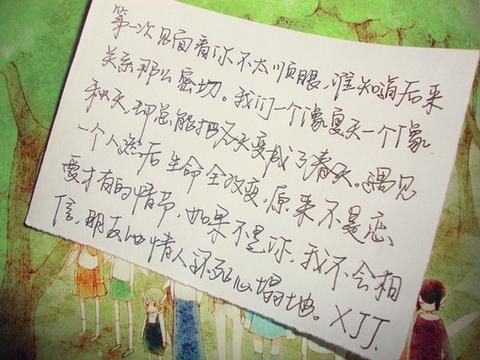 第一次见面看你不太顺眼,谁知道后来
关系那么密切。我们一个像夏天一个像
秋天,却总能把冬天变成了春天。遇见
一个人然后生命全改变,原来不是恋
爱才有的情节,如果不是你,我不会相
信,朋友比情人还死心塌地。XJJ.